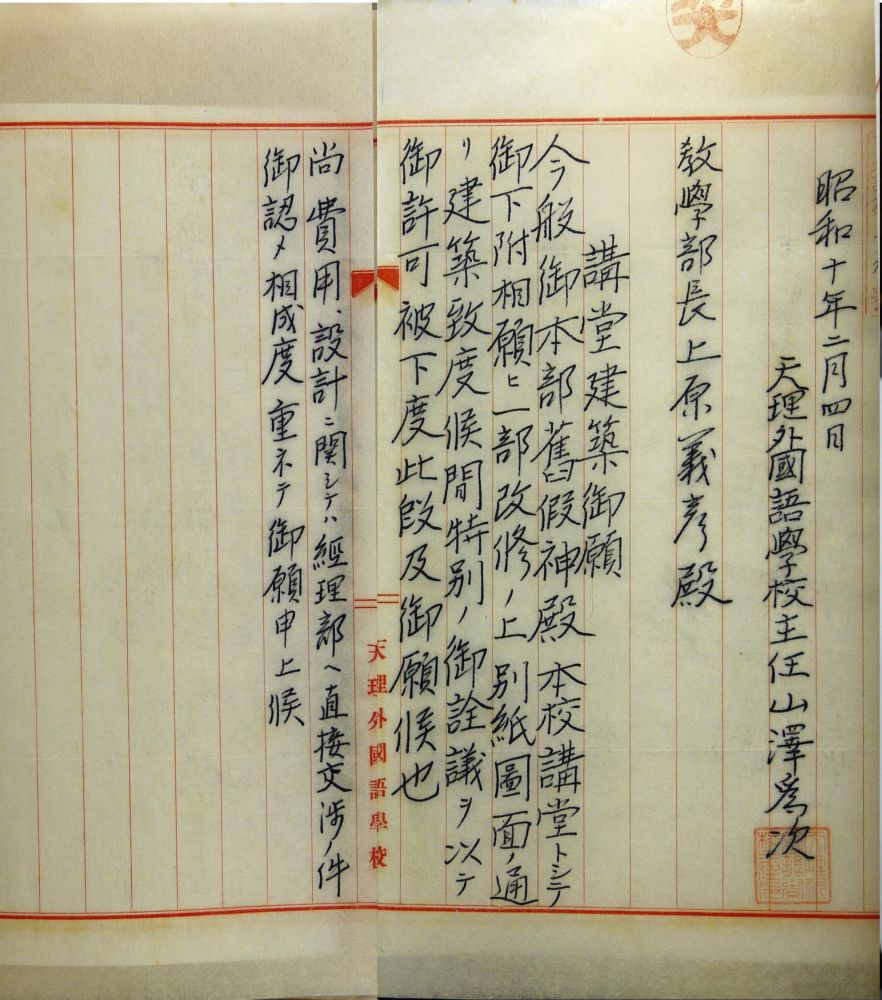 昭和十年二月四日
天理外國語學校主任山澤爲次
教學部長上原義彦殿
講堂建築御願
今般御本部舊假神殿本校講堂トシテ
御下附相願ヒ一部改修ノ上別紙圖面ノ通
リ建築致度候間特別ノ御詮議ヲ以テ
御許可被下度此段及御願候也
天理外國語學校
尚費用、設計ニ関シテハ経理部ヘ直接交渉ノ件
御認メ相成度重ネテ御願申上候